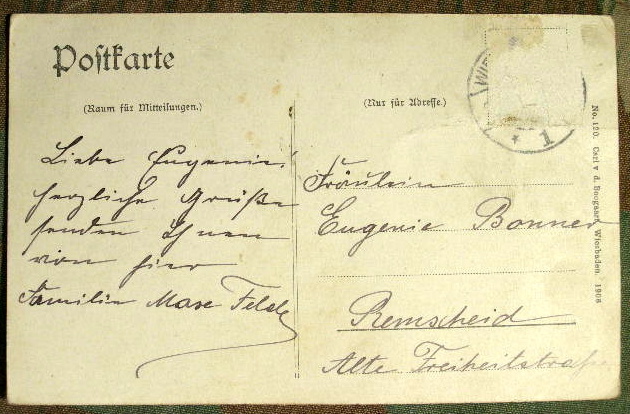 Postkarte
(Raum für Mitteilungen.)
(Nur für Adresse.)
Liebe Eugenie!
herzliche Grüße
senden Ihnen
von hier
Familie
Fräulein
Eugenie Bonner
Remscheid
Alte Freiheitstraße
WIE
* 1
No. 120. Carl v. d. Boogaart, Wiesbaden 1906